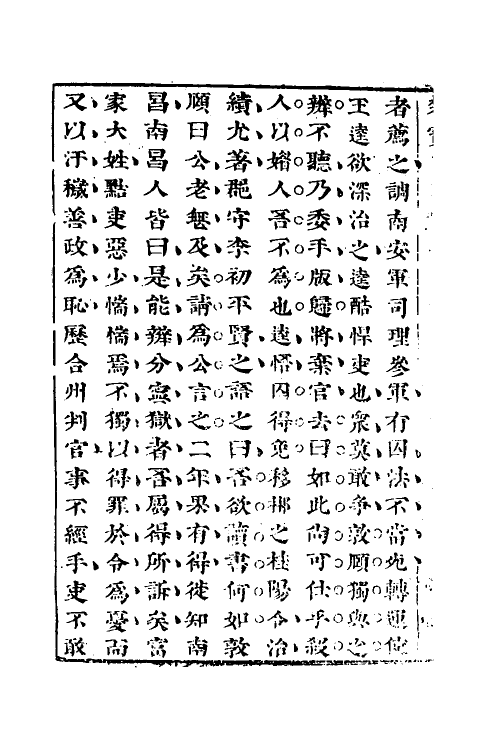 者薦之調南安軍司理參軍有囚法不當死轉運使
王逵欲深治之逵酷悍吏也眾莫敢爭敦頤獨與之
辨不聽乃委手版歸將棄官去曰如此尚可仕乎殺
人以媚人吾不為也逵悟囚得免移郴之桂陽令治
績尤著郡守李初平賢之語之曰吾欲讀書何如敦
頤曰公老無及矣請為公言之二年果有得徙知南
昌南昌人皆曰是能辨分寧獄者吾屬得所訴矣富
家大姓黠吏惡少惴惴焉不獨以得罪於令為憂而
又以汙穢善政為恥歷合州判官事不經手吏不敢